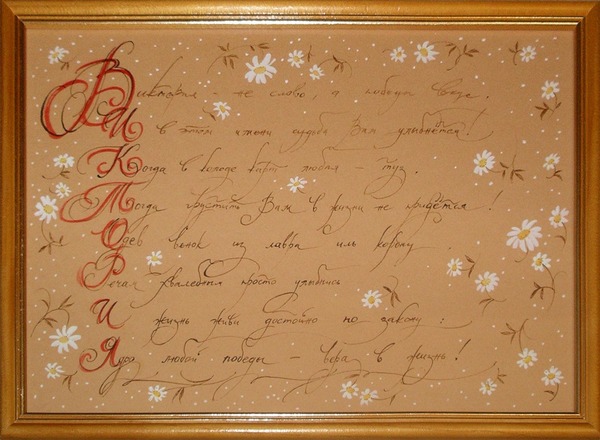 Виктория - не слово, а победы
И в этом имени судьба Вам улыбнётся!
Когда в колоде карт любая - туз.
Тогда грустить Вам в жизни не придётся!
Одев венок из лавра иль корону
Речам хвалебным просто улыбнись
И жизнь живи достойно по закону:
Ядро любой победы - вера в жизнь!